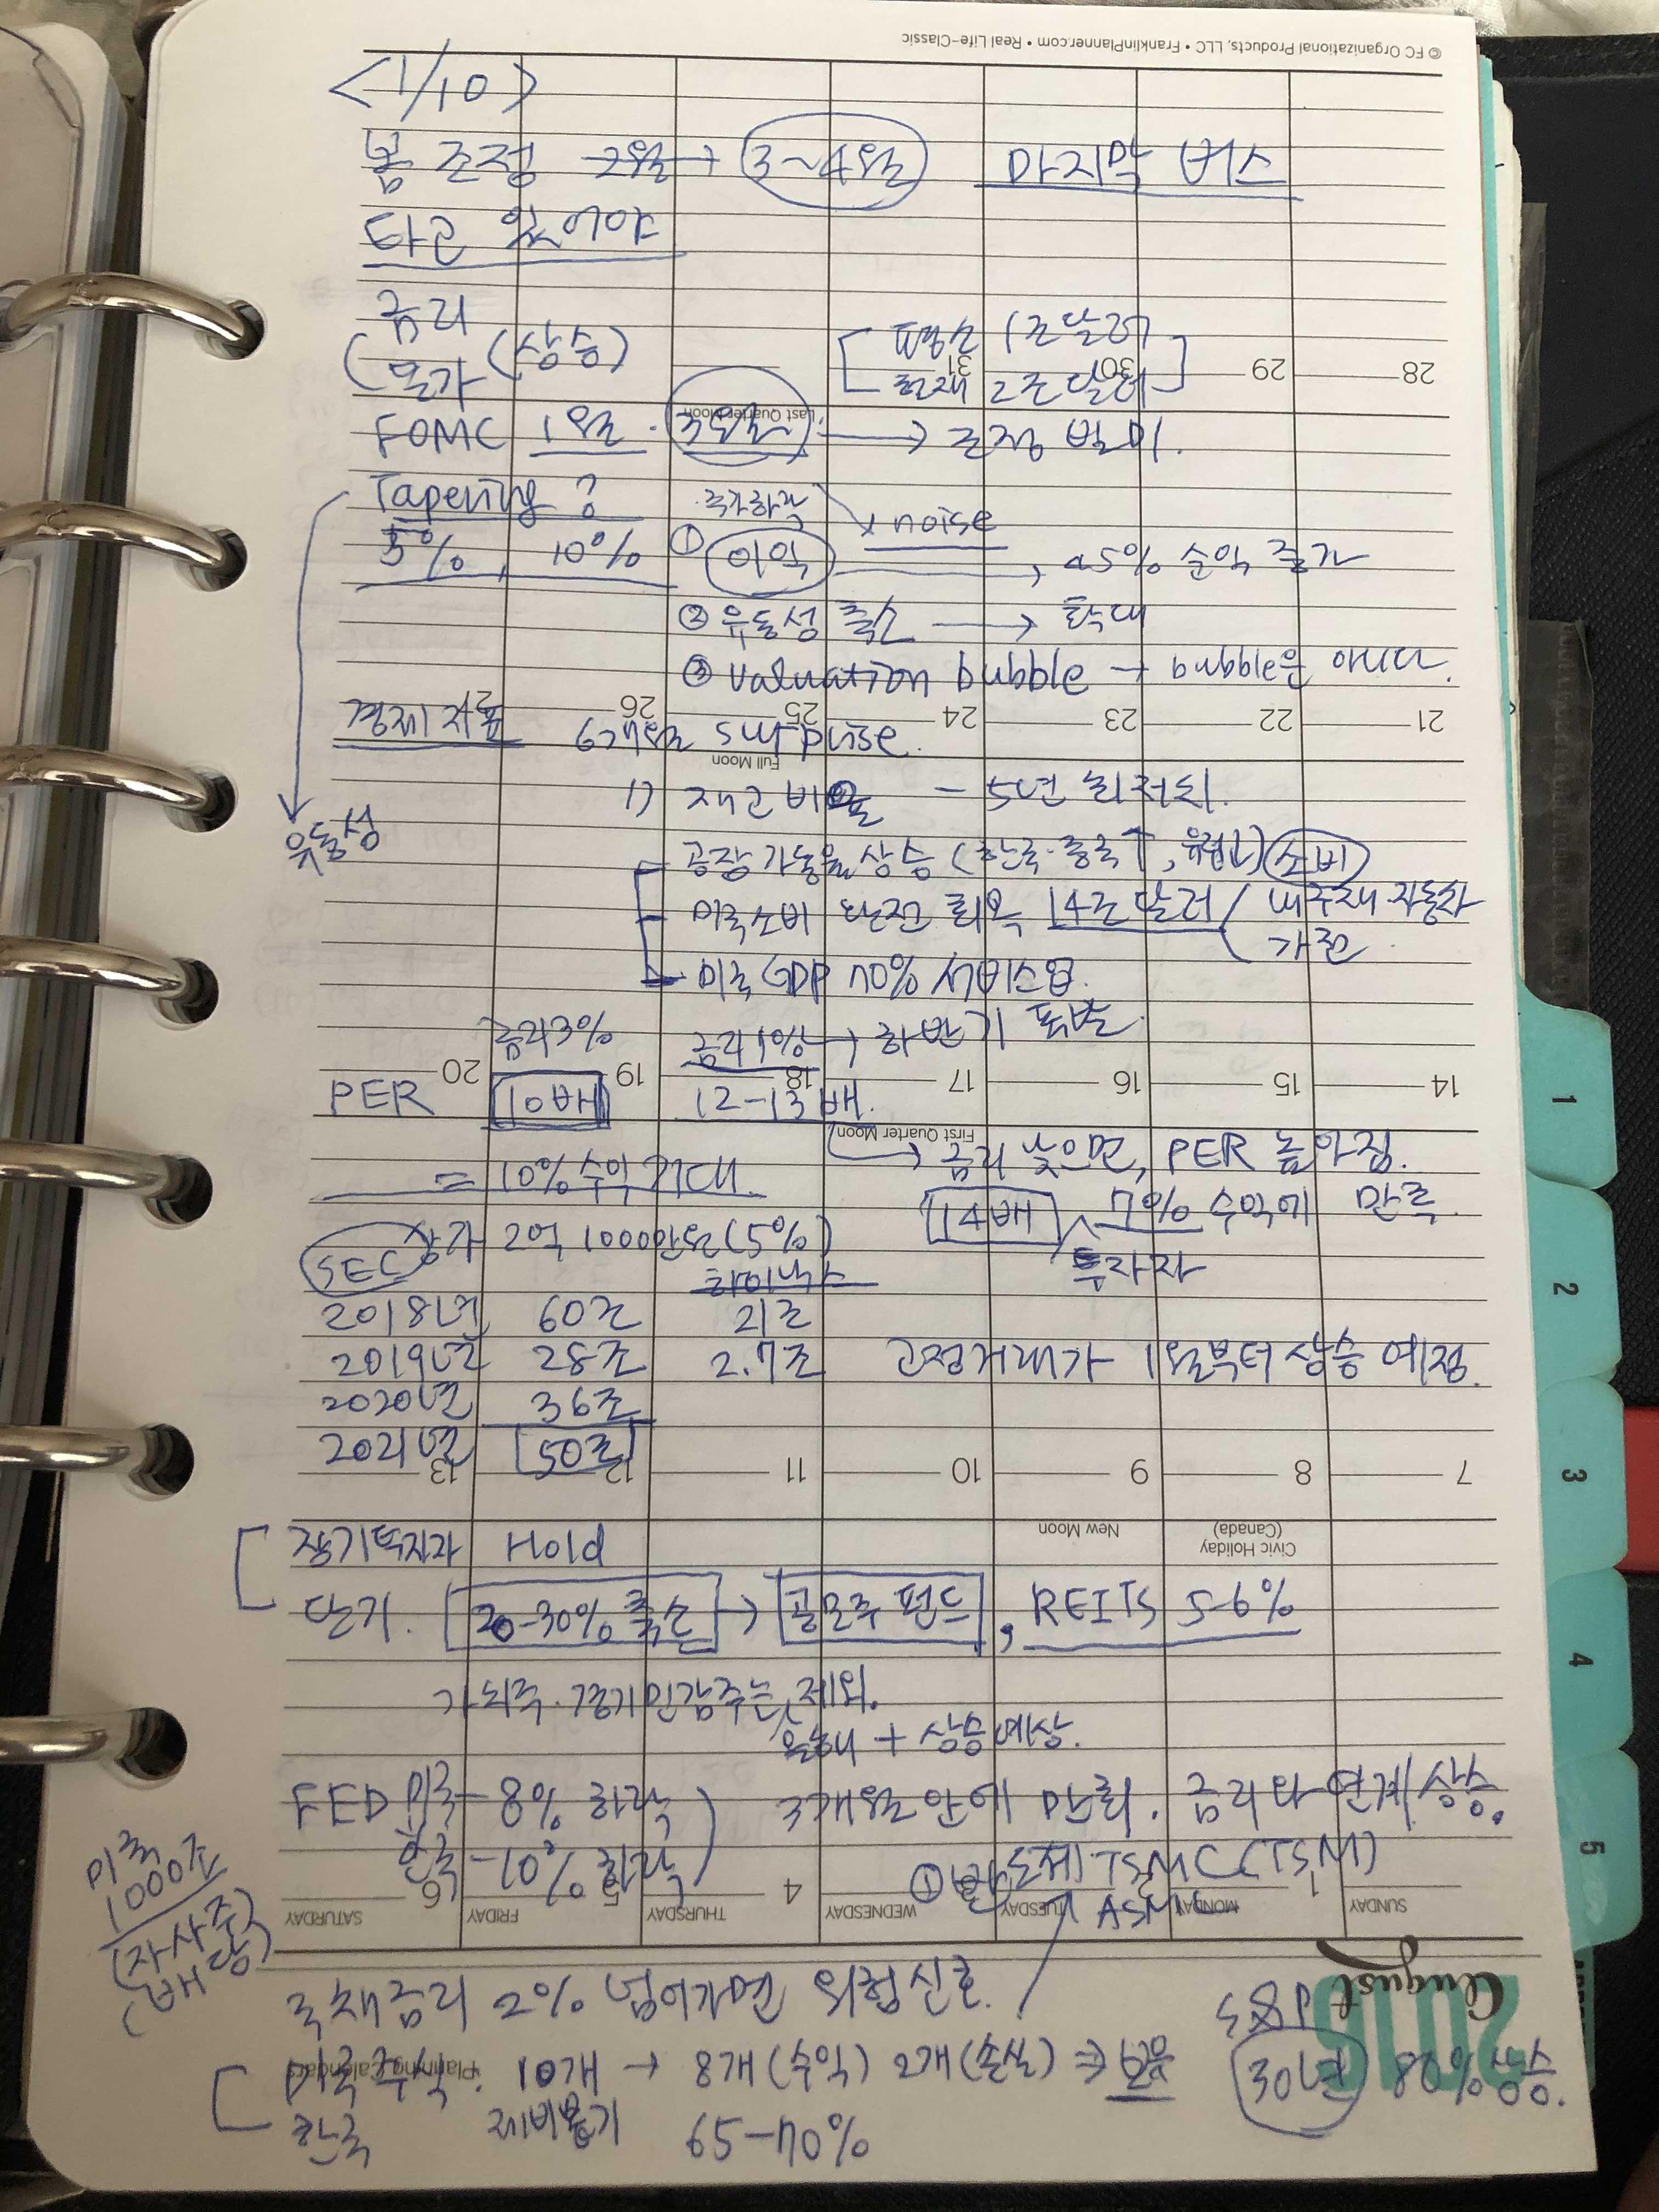 © FC Organizational Products, LLC • FranklinPlanner.com • Real Life-Classic
<1/10>
폭 조정 2월 → 3~4월 마지막 버스
최근 증여
금리
물가 (상승)
평균 1조 달러
현재 2조 달러
FOMC 1월 · 3월 → 조정 빌미.
Tapering ?
주가하락
noise
5%, 10% ① 이익 → 45% 순익 증가
② 유동성 축소 → 확대
③ valuation bubble → bubble은 아니다.
경제지표 6개월 surprise.
유동성
1) 재고비율 - 5년 최저치.
- 공장 가동율 상승 (한국·중국↑, 유럽↑) 소비
- 미국소비 완전 회복 14조 달러 / 내구재·자동차
가전
- 미국 GDP 70% 서비스업.
금리3% 금리1% → 하반기 폭발
PER 10배 12-13배.
→ 금리 낮으면, PER 높아짐.
= 10% 수익 기대. 14배 7% 수익에 만족
투자자
상가 2억 1000만원(5%)
SEC 하이닉스
2018년 60조 21조
2019년 28조 2.7조 고정거래가 1월부터 상승 예정.
2020년 36조
2021년 50조
장기투자자 Hold
단기. 20-30% 축소 → 공모주 펀드, REITs 5-6%
가치주·경기민감주는 제외.
은행 + 상승예상.
FED 미국 - 8% 하락
한국 - 10% 하락
3개월 안에 만회. 금리와 연계 상승.
① 반도체. TSMC (TSM)
ASML
미국
1000조
(자사주
배당)
국채금리 2% 넘어가면 위험신호.
미국주식. 10개 → 8개(수익) 2개(손실)
한국 제비뽑기 65-70%
S&P
30년 80% 상승.
2016
August
Planning Calendar
SUNDAY MONDAY TUESDAY WEDNESDAY THURSDAY FRIDAY SATURDAY
1 4 5 6
Civic Holiday
(Canada)
New Moon
7 8 9 10 11 12 13
First Quarter Moon
14 15 16 17 18 19 20
Full Moon
21 22 23 24 25 26
Last Quarter Moon
28 29 30 31
1
2
3
4
5